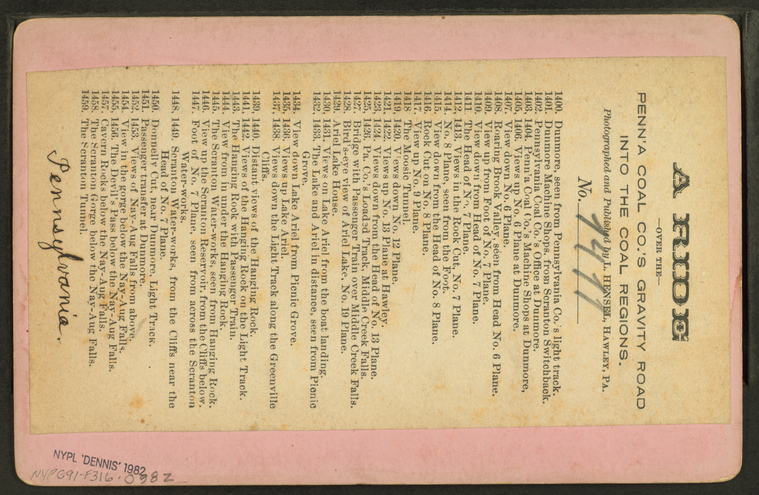 A RIDE
—OVER THE—
PENN'A COAL CO.'S GRAVITY ROAD
INTO THE COAL REGIONS.
Photographed and Published by L. HENSEL, HAWLEY, PA.
No.
1400. Dunmore, seen from Pennsylvania Co.'s light track.
1401. Dunmore Machine Shops, from Scranton Switchback.
1402. Pennsylvania Coal Co.'s Office at Dunmore.
1403. 1404. Penn'a Coal Co.'s Machine Shops at Dunmore,
1405. 1406. Views up No. 6 Plane at Dunmore.
1407. View down No. 6 Plane.
1408. Roaring Brook Valley, seen from Head No. 6 Plane.
1409. View up from Foot of No. 7 Plane.
1410. View down from Head of No. 7 Plane.
1411. The Head of No. 7 Plane.
1412. 1413. Views in the Rock Cut, No. 7 Plane.
1414. No. 8 Plane, seen from the Foot.
1415. View down from the Head of No. 8 Plane.
1416. Rock Cut on No. 8 Plane.
1417. View up No. 9 Plane.
1418. The Mosic Tunnel.
1419. 1420. Views down No. 12 Plane.
1421. 1422. Views up No. 13 Plane at Hawley.
1423. 1424. Views down from the Head of No. 13 Plane.
1425. 1426. Pa. Co.'s Loaded Track, Middle Creek Falls.
1427. Bridge with Passenger Train over Middle Creek Falls.
1428. Bird's-eye view of Ariel Lake, No. 19 Plane.
1429. Ariel Lake House.
1430. 1431. View on Lake Ariel from the boat landing.
1432. 1433. The Lake and Ariel in distance, seen from Picnic
Grove.
1434. View down Lake Ariel from Picnic Grove.
1435. 1436. Views up Lake Ariel.
1437. 1438. Views down the Light Track along the Greenville
Cliffs.
1439. 1440. Distant views of the Hanging Rock.
1441. 1442. Views of the Hanging Rock on the Light Track.
1443. The Hanging Rock with Passenger Train.
1444. View from in under the Hanging Rock.
1445. The Scranton Water-works, seen from Hanging Rock.
1446. View up the Scranton Reservoir, from the Cliffs below.
1447. Foot of No. 7 Plane, seen from across the Scranton
Water-works.
1448. 1449. Scranton Water-works, from the Cliffs near the
Head of No. 7 Plane.
1450. Donnally Cut, near Dunmore, Light Track.
1451. Passenger transfer at Dunmore.
1452. 1453. Views of Nay-Aug Falls from above.
1454. View in the gorge below the Nay-Aug Falls.
1455. 1456. The Devil's Pass below the Nay-Aug Falls.
1457. Cavern Rocks below the Nay-Aug Falls.
1458. The Scranton Gorge below the Nay-Aug Falls.
1459. The Scranton Tunnel.
Pennsylvania.
NYPL 'DENNIS' 1982
NYPG91-F316.0382